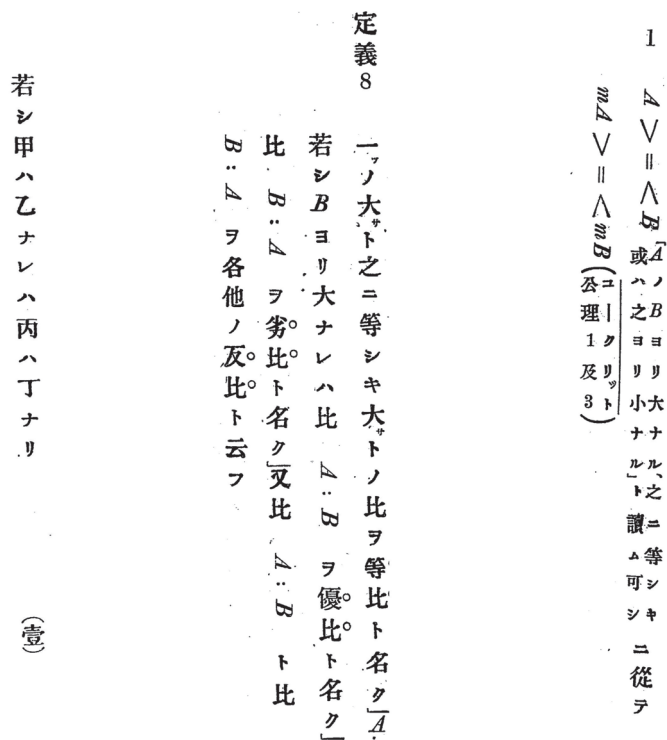 1 A>=<B「AノBヨリ大ナル、之ニ等シキ或ハ之ヨリ小ナル」ト讀ム可シニ從テ
mA>=<mB(ユークリット公理1及3)
定義8
一ッノ大サト之ニ等シキ大サトノ比ヲ等比ト名ク」A
若シBヨリ大ナレハ比 A:B ヲ優比ト名ク」
比 B:A ヲ劣比ト名ク」又比 A:B ト比
B:A ヲ各他ノ反比ト云フ
若シ甲ハ乙ナレハ丙ハ丁ナリ (壹)